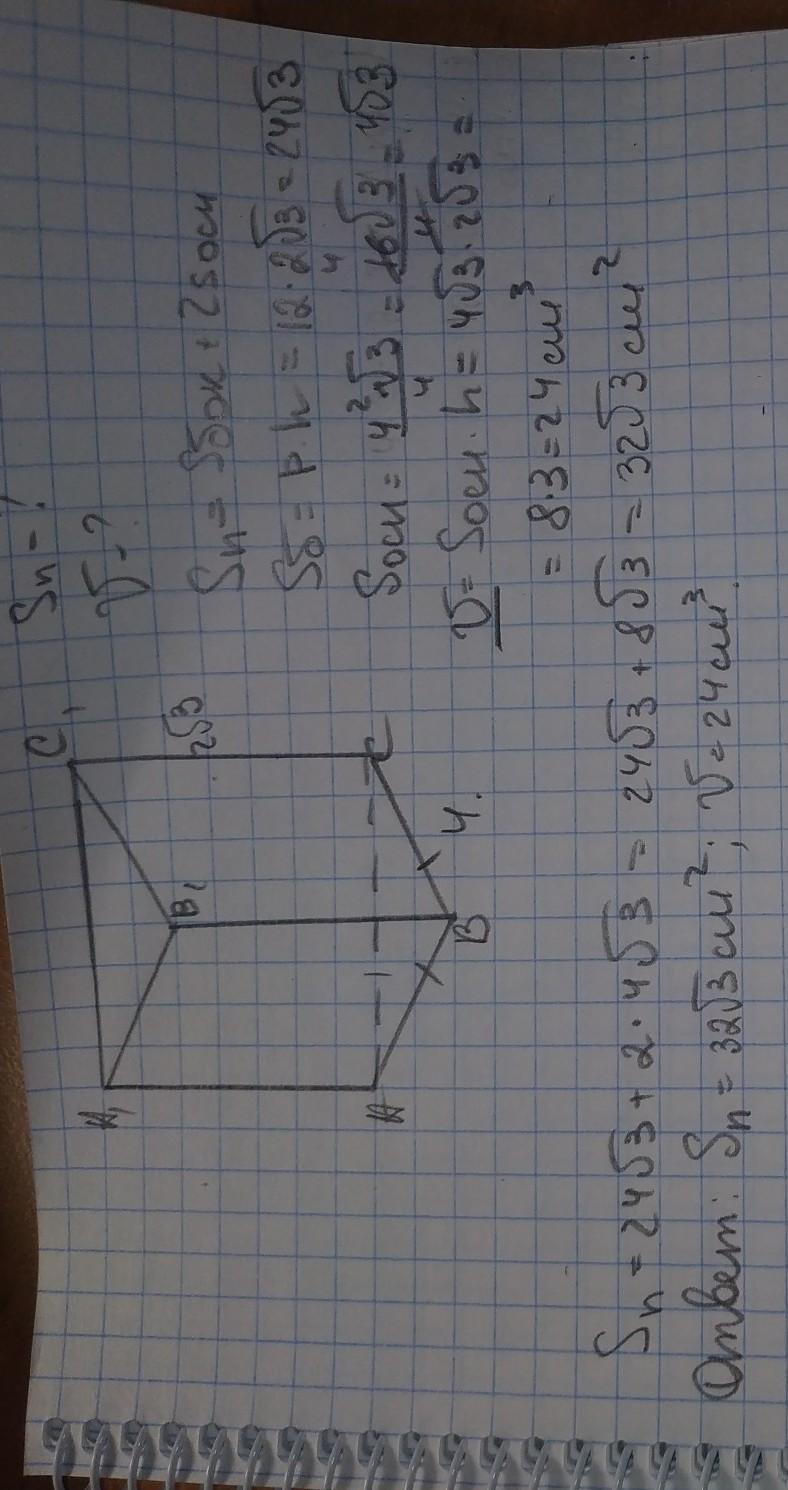 Sп - ?
V - ?
A₁ B₁ C₁
2√3
A B C
4.
Sп = Sбок + 2Sосн
Sб = p·h = 12·2√3 = 24√3
Sосн = 4²√3/4 = 16√3/4 = 4√3
V = Sосн·h = 4√3·2√3 =
= 8·3 = 24 см³
Sп = 24√3 + 2·4√3 = 24√3 + 8√3 = 32√3 см²
Ответ: Sп = 32√3 см²; V = 24 см³.